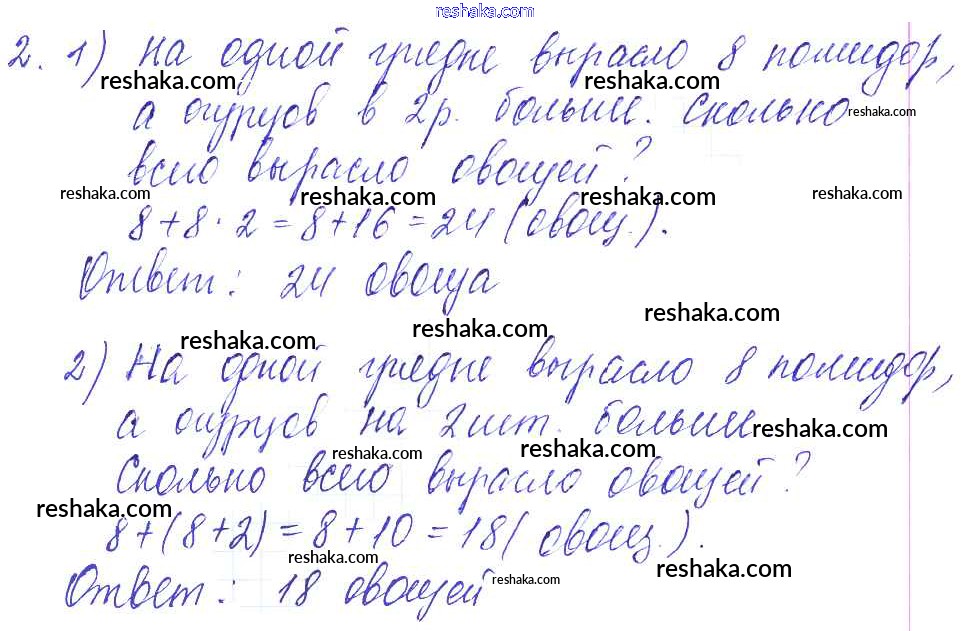 reshaka.com
2. 1) На одной грядке выросло 8 помидор,
reshaka.com reshaka.com reshaka.com
а огурцов в 2 р. больше. Сколько
reshaka.com
всего выросло овощей?
reshaka.com reshaka.com reshaka.com reshaka.com
8 + 8 · 2 = 8 + 16 = 24 (овощ.).
Ответ: 24 овоща
reshaka.com reshaka.com reshaka.com
2) На одной грядке выросло 8 помидор,
а огурцов на 2 шт. больше
reshaka.com reshaka.com reshaka.com
Сколько всего выросло овощей?
reshaka.com
8 + (8 + 2) = 8 + 10 = 18 (овощ.).
reshaka.com reshaka.com reshaka.com
Ответ: 18 овощей